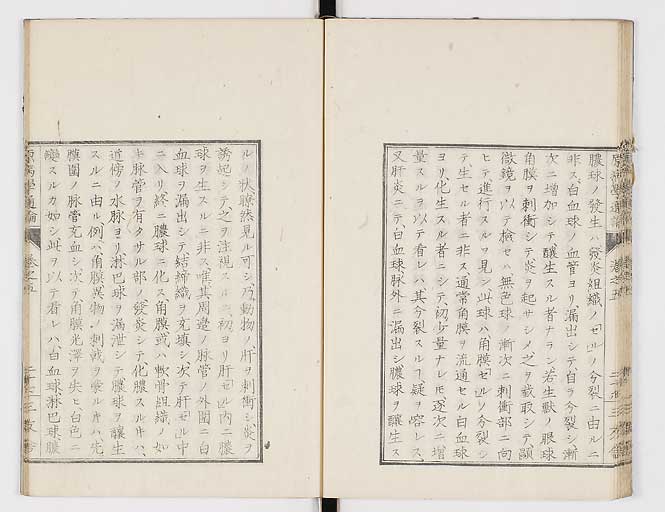 膿球ノ發生ハ發炎組織ノセルノ分裂ニ由ルニ
非ス、白血球ノ血管ヨリ漏出シテ、自ラ分裂シ漸
次ニ增加シテ釀生スル者ナラン、若生獸ノ眼球
角膜ヲ刺衝シテ炎ヲ起サシメ、之ヲ截取シテ顯
微鏡ヲ以テ檢セハ無色球ノ漸次ニ刺衝部ニ向
ヒテ進行スルヲ見ン、此球ハ角膜セルノ分裂シ
テ生セル者ニ非ス、通常角膜ヲ流通セル白血球
ヨリ化生スル者ニシテ、初少量ナレ𪜈逐次ニ增
量スルヲ以テ看レハ、其分裂スルヿ疑ヲ容レス、
又肝炎ニテ、白血球脉外ニ漏出シ膿球ヲ釀生ス
ルノ狀瞭然見ル可シ、乃動物ノ肝ヲ刺衝シ炎ヲ
誘起シテ之ヲ注視スルニ、初ヨリ肝セル內ニ膿
球ヲ生スルニ非ス、唯其周邊ノ脉管ノ外圍ニ白
血球ヲ漏出シテ結締織ヲ充填シ、次テ肝セル中
ニ入リ終ニ膿球ニ化ス、角膜或ハ軟骨組織ノ如
キ脉管ヲ有タサル部ノ發炎シテ化膿スル𪜈ハ、
道傍ノ水脉ヨリ淋巴球ヲ漏泄シテ膿球ヲ釀生
スルニ由ル、例ハ角膜異物ノ刺戟ヲ受ル𪜈ハ先
膜圍ノ脉管充血シ次テ角膜光澤ヲ失ヒ白色ニ
變スルカ如シ、此ヲ以テ看レハ、白血球、淋巴球、膿
原病學通論
卷之五